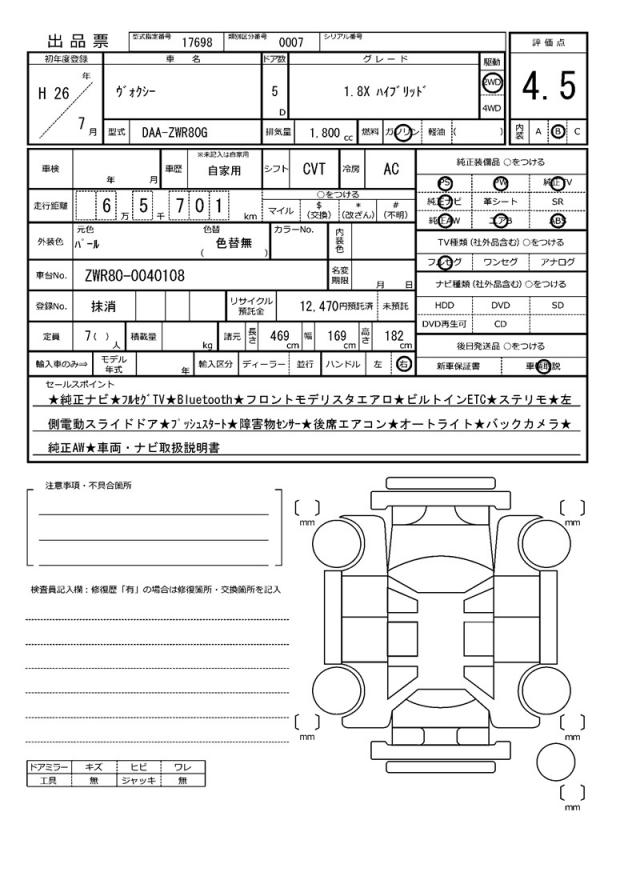 出品票 型式指定番号 17698 類別区分番号 0007 シリアル番号
評価点
4.5
内装 A B C
初年度登録 車名 ドア数 グレード 駆動
H 26 年 7 月 ヴォクシー 5 D 1.8X ハイブリッド 2WD 4WD
型式 DAA-ZWR80G 排気量 1.800 cc 燃料 ガソリン 軽油 ( )
車検 年 月 車歴 ※未記入は自家用 自家用 シフト CVT 冷房 AC
走行距離 6 万 5 千 7 0 1 km ○をつける マイル $(交換) *(改ざん) #(不明)
外装色 元色 パール 色替 ( 色替無 ) カラーNo. 内装色
車台No. ZWR80-0040108 名変期限 月 日
登録No. 抹消 リサイクル預託金 12,470円預託済 未預託
定員 7( ) 人 積載量 kg 諸元 長さ 469 cm 幅 169 cm 高さ 182 cm
輸入車のみ⇒ モデル年式 年 輸入区分 ディーラー 並行 ハンドル 左 右
純正装備品 ○をつける
PS PW 純正TV
純正ナビ 革シート SR
純正AW エアB ABS
TV種類(社外品含む)○をつける
フルセグ ワンセグ アナログ
ナビ種類(社外品含む)○をつける
HDD DVD SD
DVD再生可 CD
後日発送品 ○をつける
新車保証書 車輌取説
セールスポイント
★純正ナビ★フルセグTV★Bluetooth★フロントモデリスタエアロ★ビルトインETC★ステリモ★左
側電動スライドドア★プッシュスタート★障害物センサー★後席エアコン★オートライト★バックカメラ★
純正AW★車両・ナビ取扱説明書
注意事項・不具合箇所
検査員記入欄：修復歴「有」の場合は修復箇所・交換箇所を記入
ドアミラー キズ ヒビ ワレ
工具 無 ジャッキ 無
mm
mm
mm
mm
mm